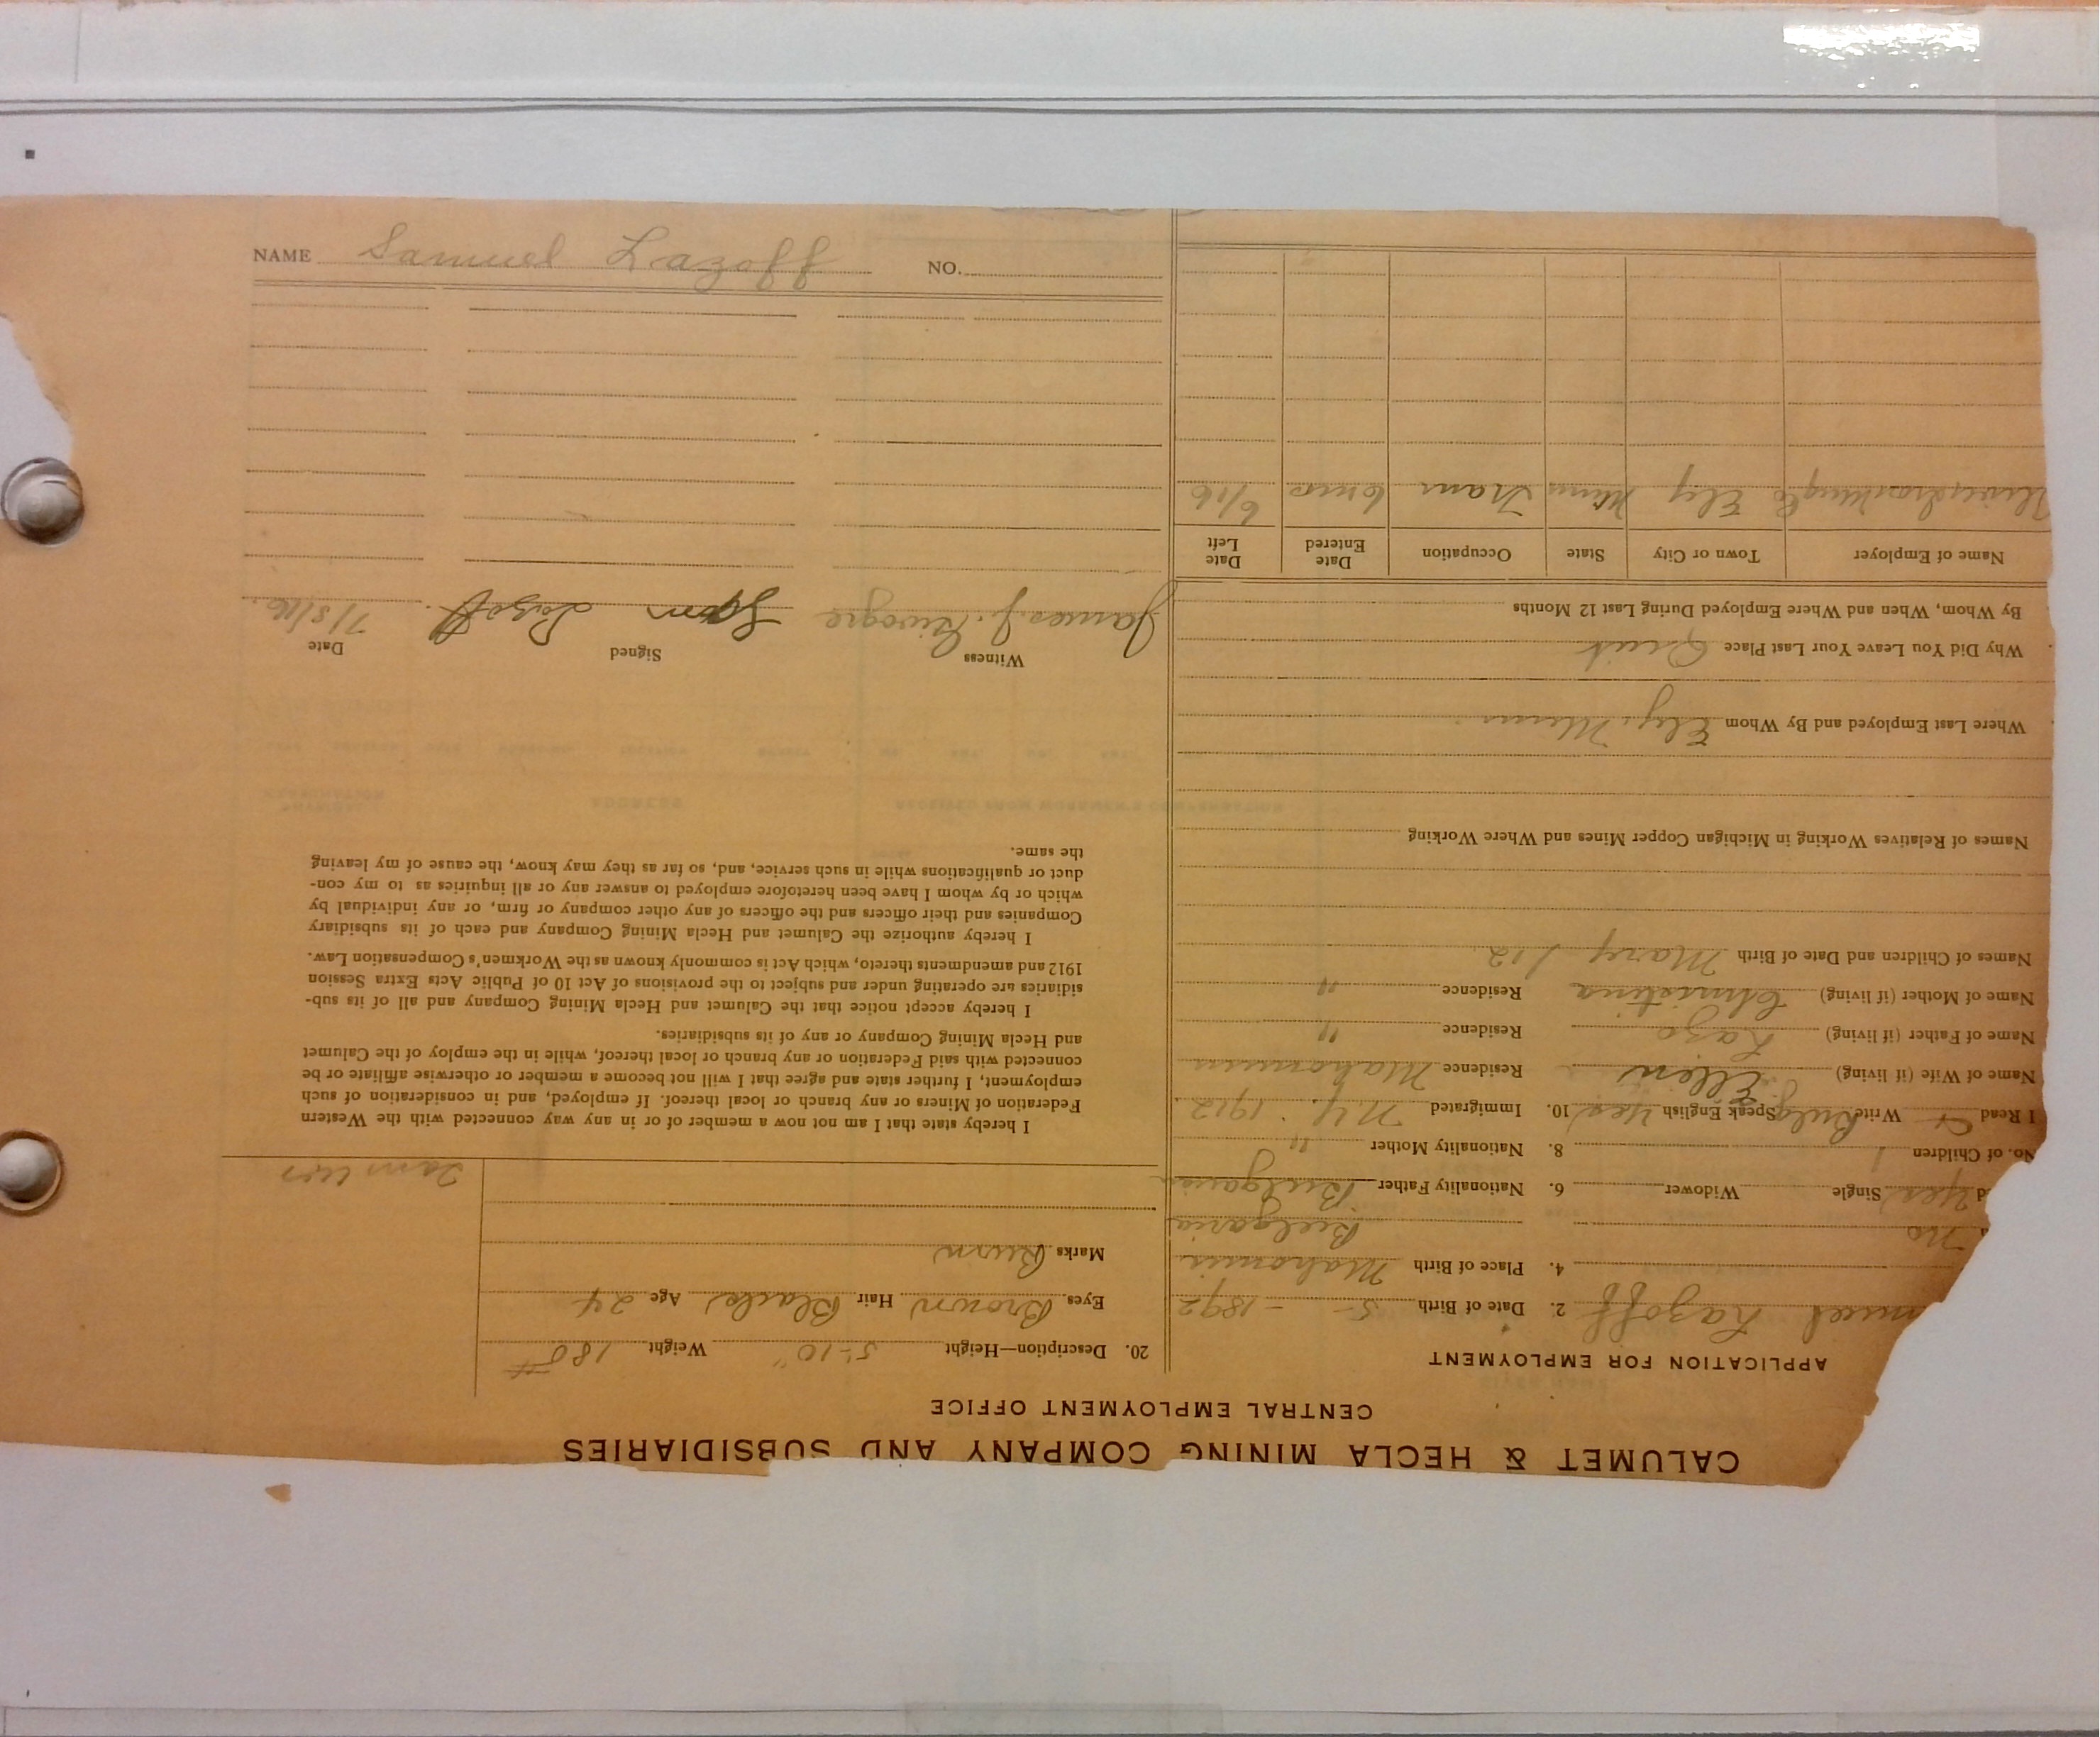 CALUMET & HECLA MINING COMPANY AND SUBSIDIARIES
CENTRAL EMPLOYMENT OFFICE
APPLICATION FOR EMPLOYMENT
muel Lazoff 2. Date of Birth 5 - - 1892
4. Place of Birth Mahomis
No Bulgaria
d Yes Single Widower 6. Nationality Father Bulgarian
No. of Children 1 8. Nationality Mother "
I Read Write Bulg. Speak English Yes 10. Immigrated N.Y. 1912
Name of Wife (if living) Ellen Residence Mahomis
Name of Father (if living) Lazo Residence "
Name of Mother (if living) Christina Residence "
Names of Children and Date of Birth Mary 1 12
Names of Relatives Working in Michigan Copper Mines and Where Working
Where Last Employed and By Whom Ely, Minn
Why Did You Leave Your Last Place Quit
By Whom, When and Where Employed During Last 12 Months
Name of Employer Town or City State Occupation Date Entered Date Left
Ely Minn Tram 6 mos 6/16
20. Description—Height 5'-10" Weight 180#
Eyes Brown Hair Black Age 24
Marks Burn
I hereby state that I am not now a member of or in any way connected with the Western
Federation of Miners or any branch or local thereof. If employed, and in consideration of such
employment, I further state and agree that I will not become a member or otherwise affiliate or be
connected with said Federation or any branch or local thereof, while in the employ of the Calumet
and Hecla Mining Company or any of its subsidiaries.
I hereby accept notice that the Calumet and Hecla Mining Company and all of its sub-
sidiaries are operating under and subject to the provisions of Act 10 of Public Acts Extra Session
1912 and amendments thereto, which Act is commonly known as the Workmen's Compensation Law.
I hereby authorize the Calumet and Hecla Mining Company and each of its subsidiary
Companies and their officers and the officers of any other company or firm, or any individual by
which or by whom I have been heretofore employed to answer any or all inquiries as to my con-
duct or qualifications while in such service, and, so far as they may know, the cause of my leaving
the same.
Witness Signed Date
James J. Sam Lazoff 7/8/16.
NAME Samuel Lazoff NO.